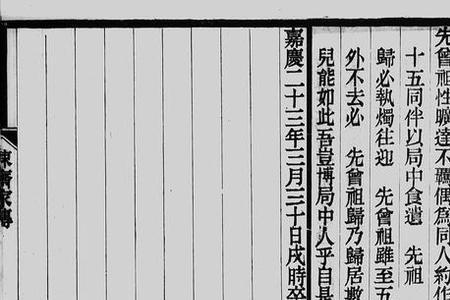 先曾祖性曠達不羈偶爲同人約作
十五同伴以局中食遺　先祖
歸必執燭往迎　先曾祖雖至五
外不去必　先曾祖歸乃歸居數
兒能如此吾豈博局中人乎自是
嘉慶二十三年三月三十日戌時卒
東齋家傳